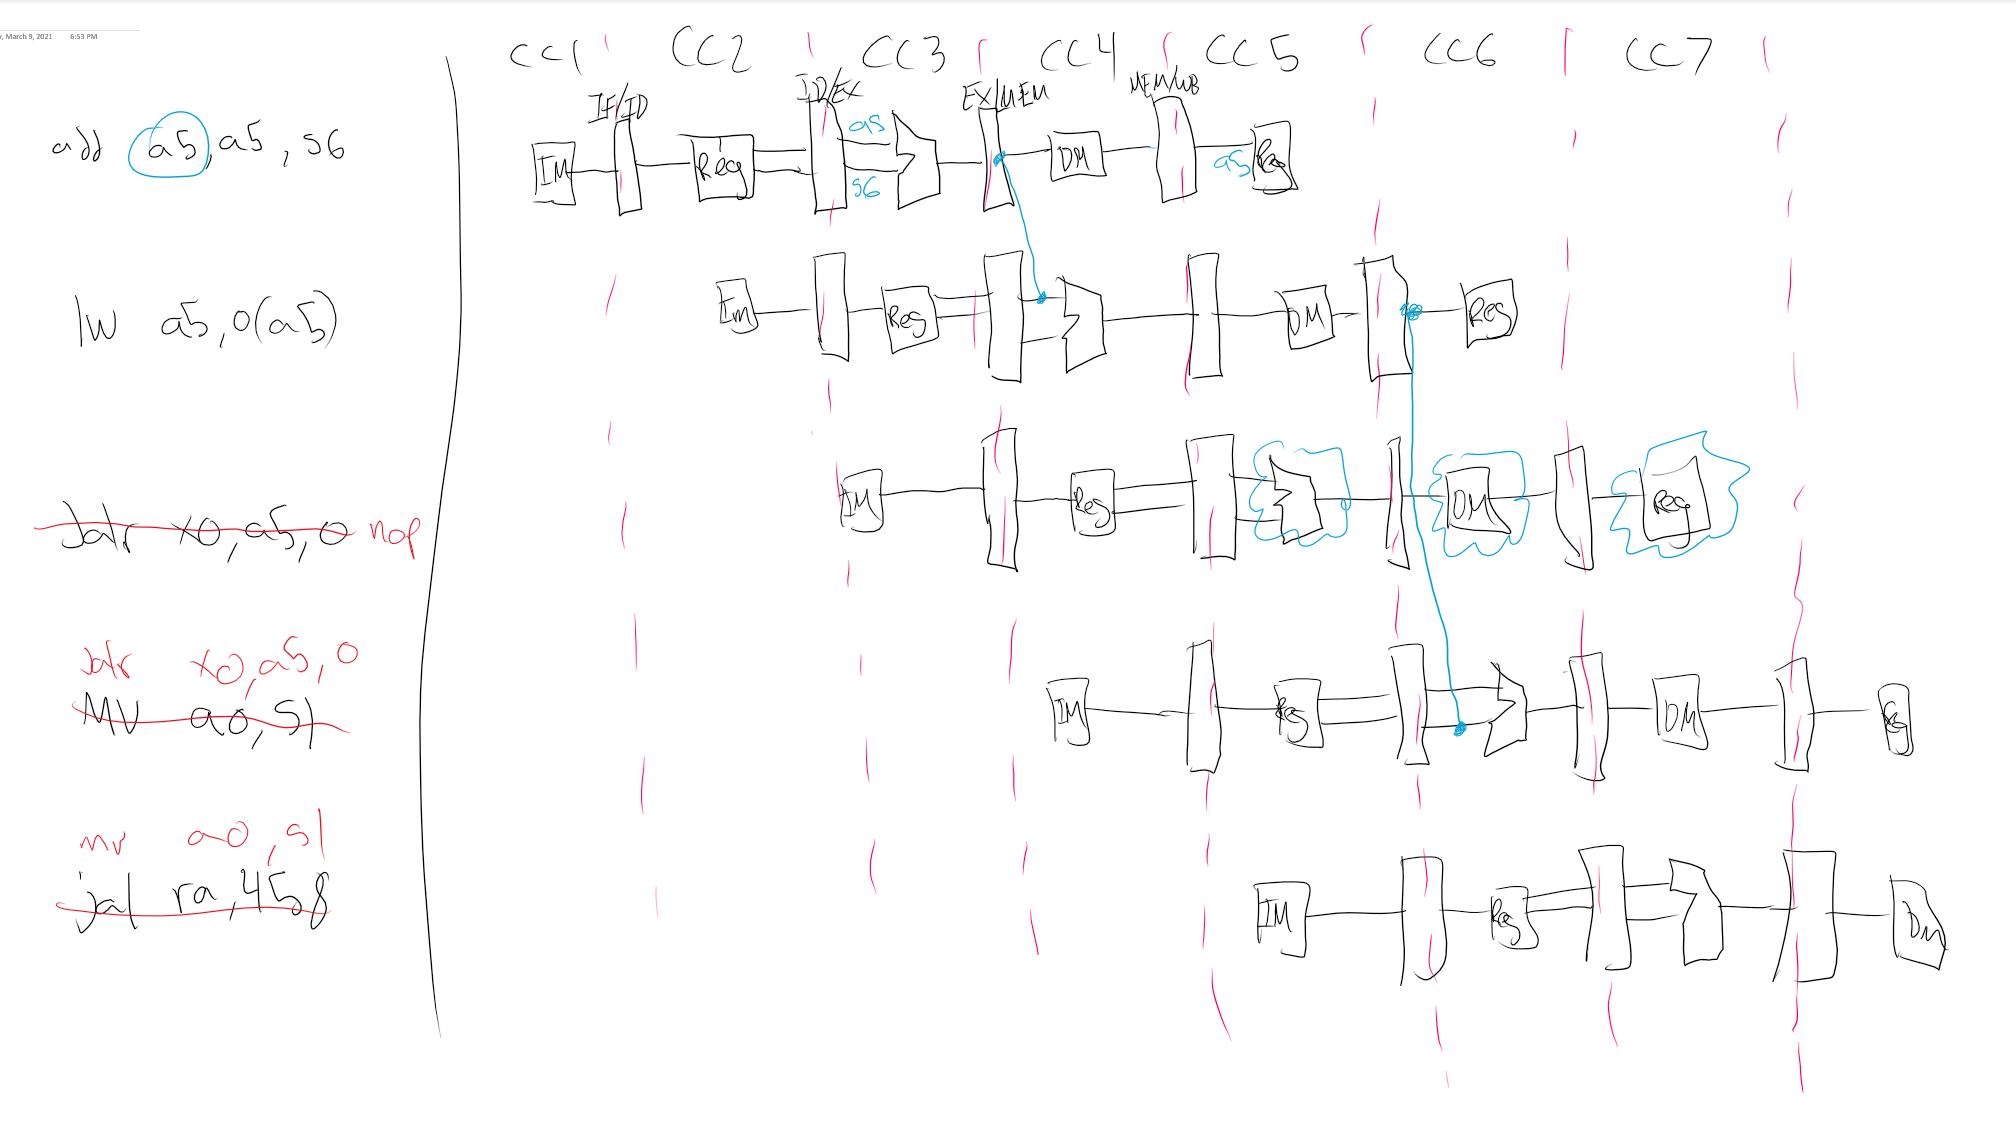 , March 9, 2021 6:53 PM
CC1 CC2 CC3 CC4 CC5 CC6 CC7
IF/ID ID/EX EX/MEM MEM/WB
add a5, a5, s6
IM Reg a5 s6 DM a5 Reg
lw a5, 0(a5)
Im Reg DM Reg
Jalr x0, a5, 0 nop
IM Reg DM Reg
Jalr x0, a5, 0
MV a0, s1
IM Reg DM Reg
mv a0, s1
jal ra, 458
IM Reg DM